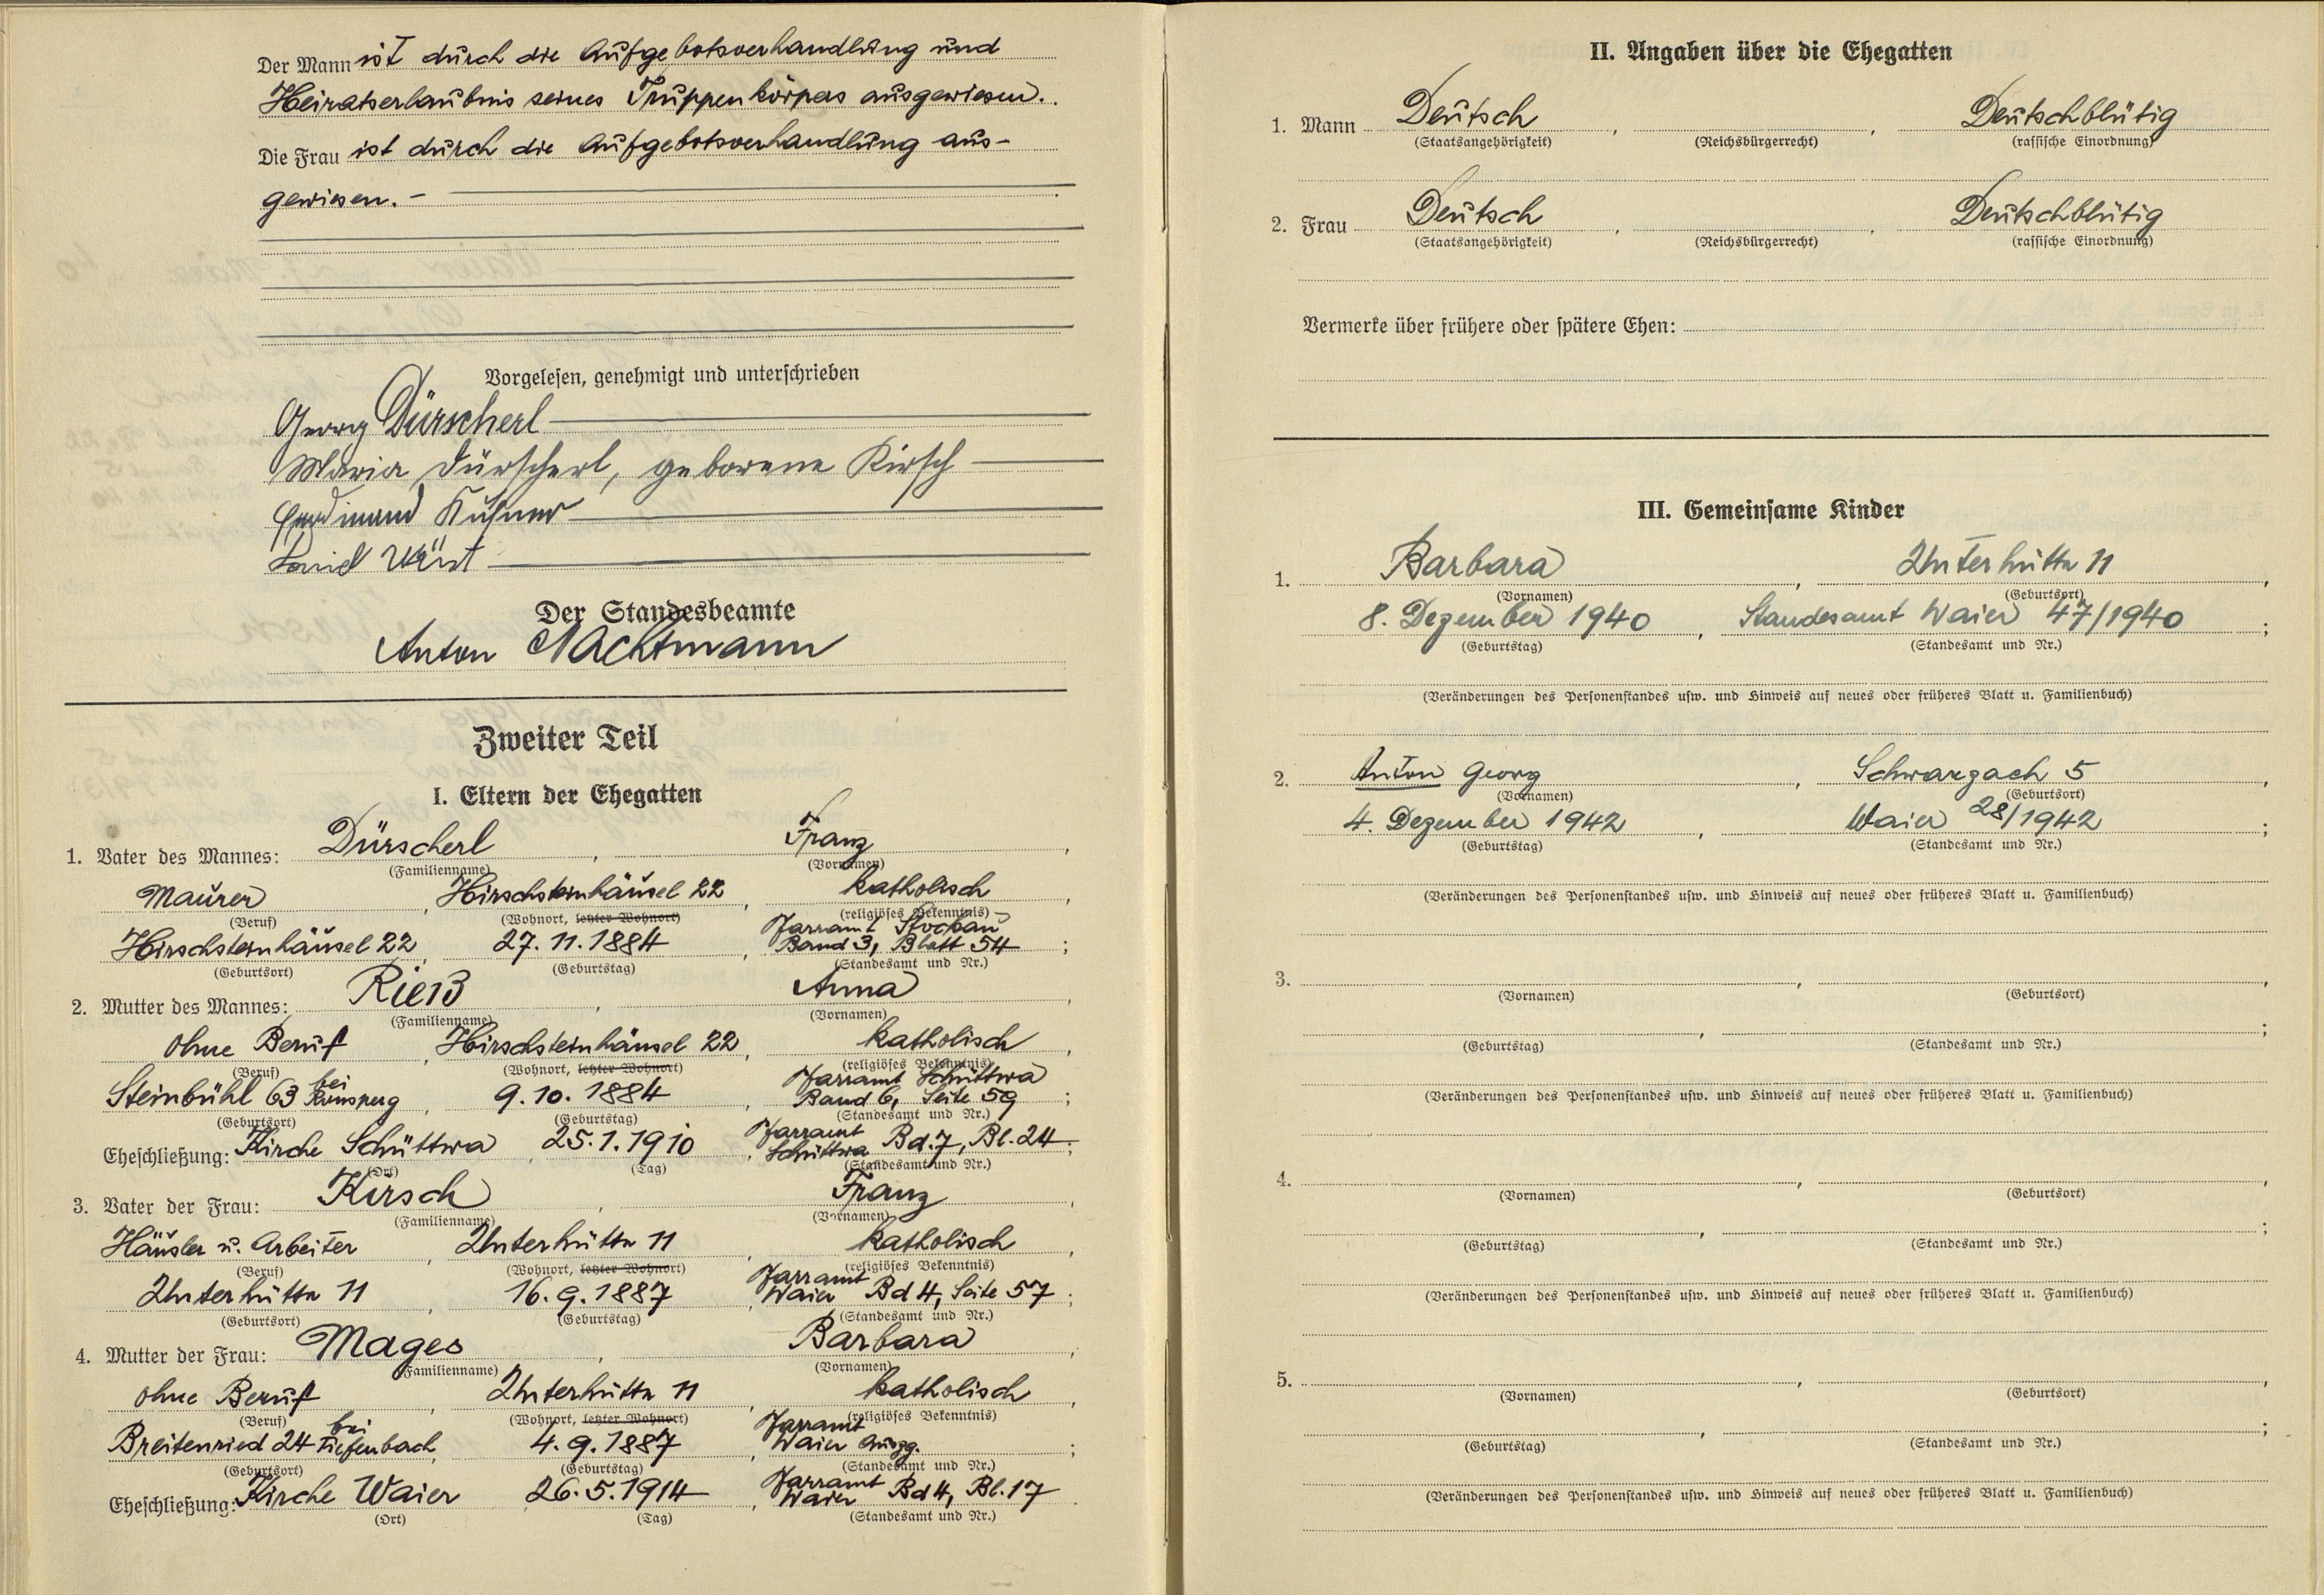 Der Mann ist durch die Aufgebotsverhandlung und
Heiratserlaubnis seines Truppenkörpers ausgewiesen.
Die Frau ist durch die Aufgebotsverhandlung aus-
gewiesen. -
Vorgelesen, genehmigt und unterschrieben
Georg Dürscherl
Maria Dürscherl, geborene Kirsch
Ferdinand
Der Standesbeamte
Anton Nachtmann
Zweiter Teil
I. Eltern der Ehegatten
1. Vater des Mannes: Dürscherl, Franz,
(Familienname) (Vornamen)
Maurer, Hirschsteinhäusel 22, katholisch,
(Beruf) (Wohnort, letzter Wohnort) (religiöses Bekenntnis)
Hirschsteinhäusel 22, 27.11.1884, Pfarramt Stockau Band 3, Blatt 54;
(Geburtsort) (Geburtstag) (Standesamt und Nr.)
2. Mutter des Mannes: Rieß, Anna,
(Familienname) (Vornamen)
ohne Beruf, Hirschsteinhäusel 22, katholisch,
(Beruf) (Wohnort, letzter Wohnort) (religiöses Bekenntnis)
Steinbühl 63 bei Ronsperg, 9.10.1884, Pfarramt Schüttwa Band 6, Seite 59;
(Geburtsort) (Geburtstag) (Standesamt und Nr.)
Eheschließung: Kirche Schüttwa, 25.1.1910, Pfarramt Schüttwa Bd.7, Bl.24;
(Ort) (Tag) (Standesamt und Nr.)
3. Vater der Frau: Kirsch, Franz,
(Familienname) (Vornamen)
Häusler u. Arbeiter, Unterhütte 11, katholisch,
(Beruf) (Wohnort, letzter Wohnort) (religiöses Bekenntnis)
Unterhütte 11, 16.9.1887, Pfarramt Waier Bd 4, Seite 57;
(Geburtsort) (Geburtstag) (Standesamt und Nr.)
4. Mutter der Frau: Mages, Barbara,
(Familienname) (Vornamen)
ohne Beruf, Unterhütte 11, katholisch,
(Beruf) (Wohnort, letzter Wohnort) (religiöses Bekenntnis)
Breitenried 24 bei Tiefenbach, 4.9.1887, Pfarramt Waier;
(Geburtsort) (Geburtstag) (Standesamt und Nr.)
Eheschließung: Kirche Waier, 26.5.1914, Pfarramt Waier Bd 4, Bl.17
(Ort) (Tag) (Standesamt und Nr.)
II. Angaben über die Ehegatten
1. Mann Deutsch, , Deutschblütig
(Staatsangehörigkeit) (Reichsbürgerrecht) (rassische Einordnung)
2. Frau Deutsch, , Deutschblütig
(Staatsangehörigkeit) (Reichsbürgerrecht) (rassische Einordnung)
Vermerke über frühere oder spätere Ehen:
III. Gemeinsame Kinder
1. Barbara, Unterhütte 11,
(Vornamen) (Geburtsort)
8. Dezember 1940, Standesamt Waier 47/1940;
(Geburtstag) (Standesamt und Nr.)
(Veränderungen des Personenstandes usw. und Hinweis auf neues oder früheres Blatt u. Familienbuch)
2. Anton Georg, Schwarzach 5,
(Vornamen) (Geburtsort)
4. Dezember 1942, Waier 28/1942;
(Geburtstag) (Standesamt und Nr.)
(Veränderungen des Personenstandes usw. und Hinweis auf neues oder früheres Blatt u. Familienbuch)
3. , ,
(Vornamen) (Geburtsort)
(Geburtstag) (Standesamt und Nr.)
(Veränderungen des Personenstandes usw. und Hinweis auf neues oder früheres Blatt u. Familienbuch)
4. , ,
(Vornamen) (Geburtsort)
(Geburtstag) (Standesamt und Nr.)
(Veränderungen des Personenstandes usw. und Hinweis auf neues oder früheres Blatt u. Familienbuch)
5. , ,
(Vornamen) (Geburtsort)
(Geburtstag) (Standesamt und Nr.)
(Veränderungen des Personenstandes usw. und Hinweis auf neues oder früheres Blatt u. Familienbuch)